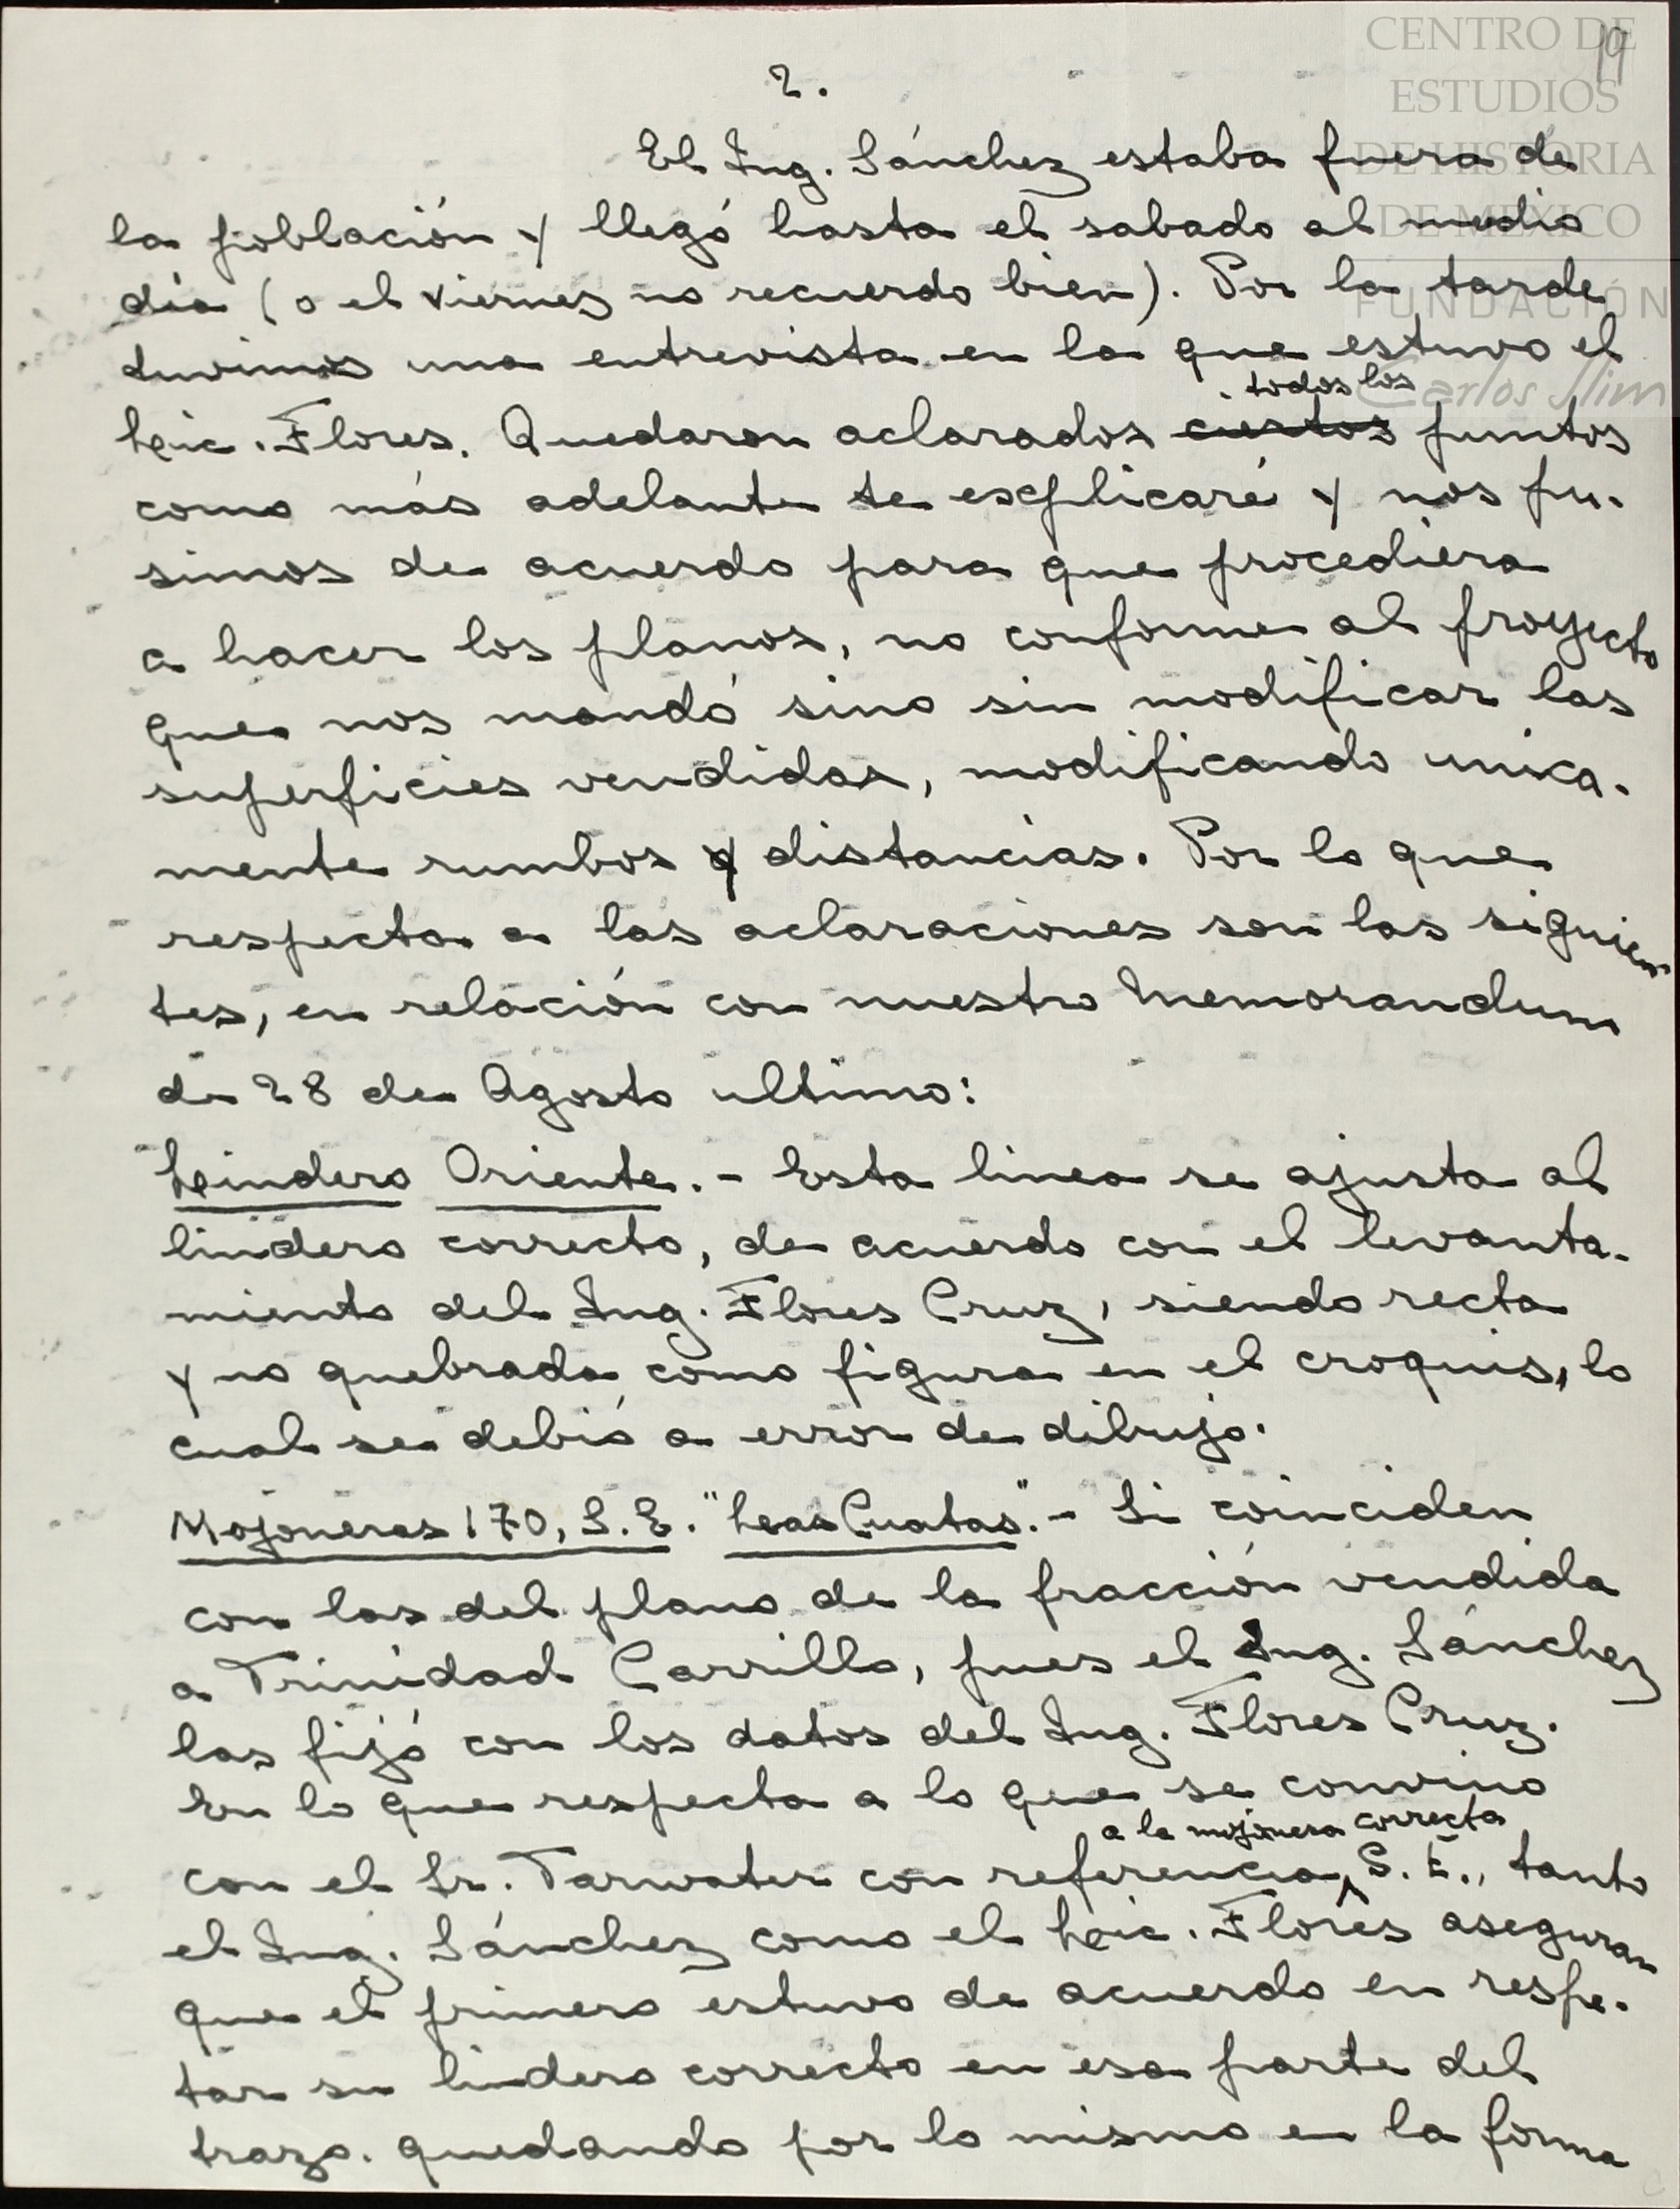 CENTRO DE
ESTUDIOS
DE HISTORIA
DE MÉXICO
FUNDACIÓN
Carlos Slim
19
2.
El Ing. Sánchez estaba fuera de
la población y llegó hasta el sabado al medio
día (o el viernes no recuerdo bien). Por la tarde
tuvimos una entrevista en la que estuvo el
todos los
Lic. Flores. Quedaron aclarados ciertos puntos
como más adelante te explicaré y nos pu-
simos de acuerdo para que procediera
a hacer los planos, no conforme al proyecto
que nos mandó sino sin modificar las
superficies vendidas, modificando unica-
mente rumbos y distancias. Por lo que
respecta a las aclaraciones son las siguien-
tes, en relación con nuestro Memorandum
de 28 de Agosto ultimo:
Lindero Oriente.- Esta linea se ajusta al
lindero correcto, de acuerdo con el levanta-
miento del Ing. Flores Cruz, siendo recta
y no quebrada como figura en el croquis, lo
cual se debió a error de dibujo.
Mojoneras 170, S.E. "Las Cuatas".- Si coinciden
con las del plano de la fracción vendida
a Trinidad Carrillo, pues el Ing. Sánchez
las fijó con los datos del Ing. Flores Cruz.
En lo que respecta a lo que se convino
a la mojonera correcta
con el Sr. Tarwater con referencia S. E., tanto
el Ing. Sánchez como el Lic. Flores aseguran
que el primero estuvo de acuerdo en respe-
tar su lindero correcto en esa parte del
trazo. quedando por lo mismo en la forma